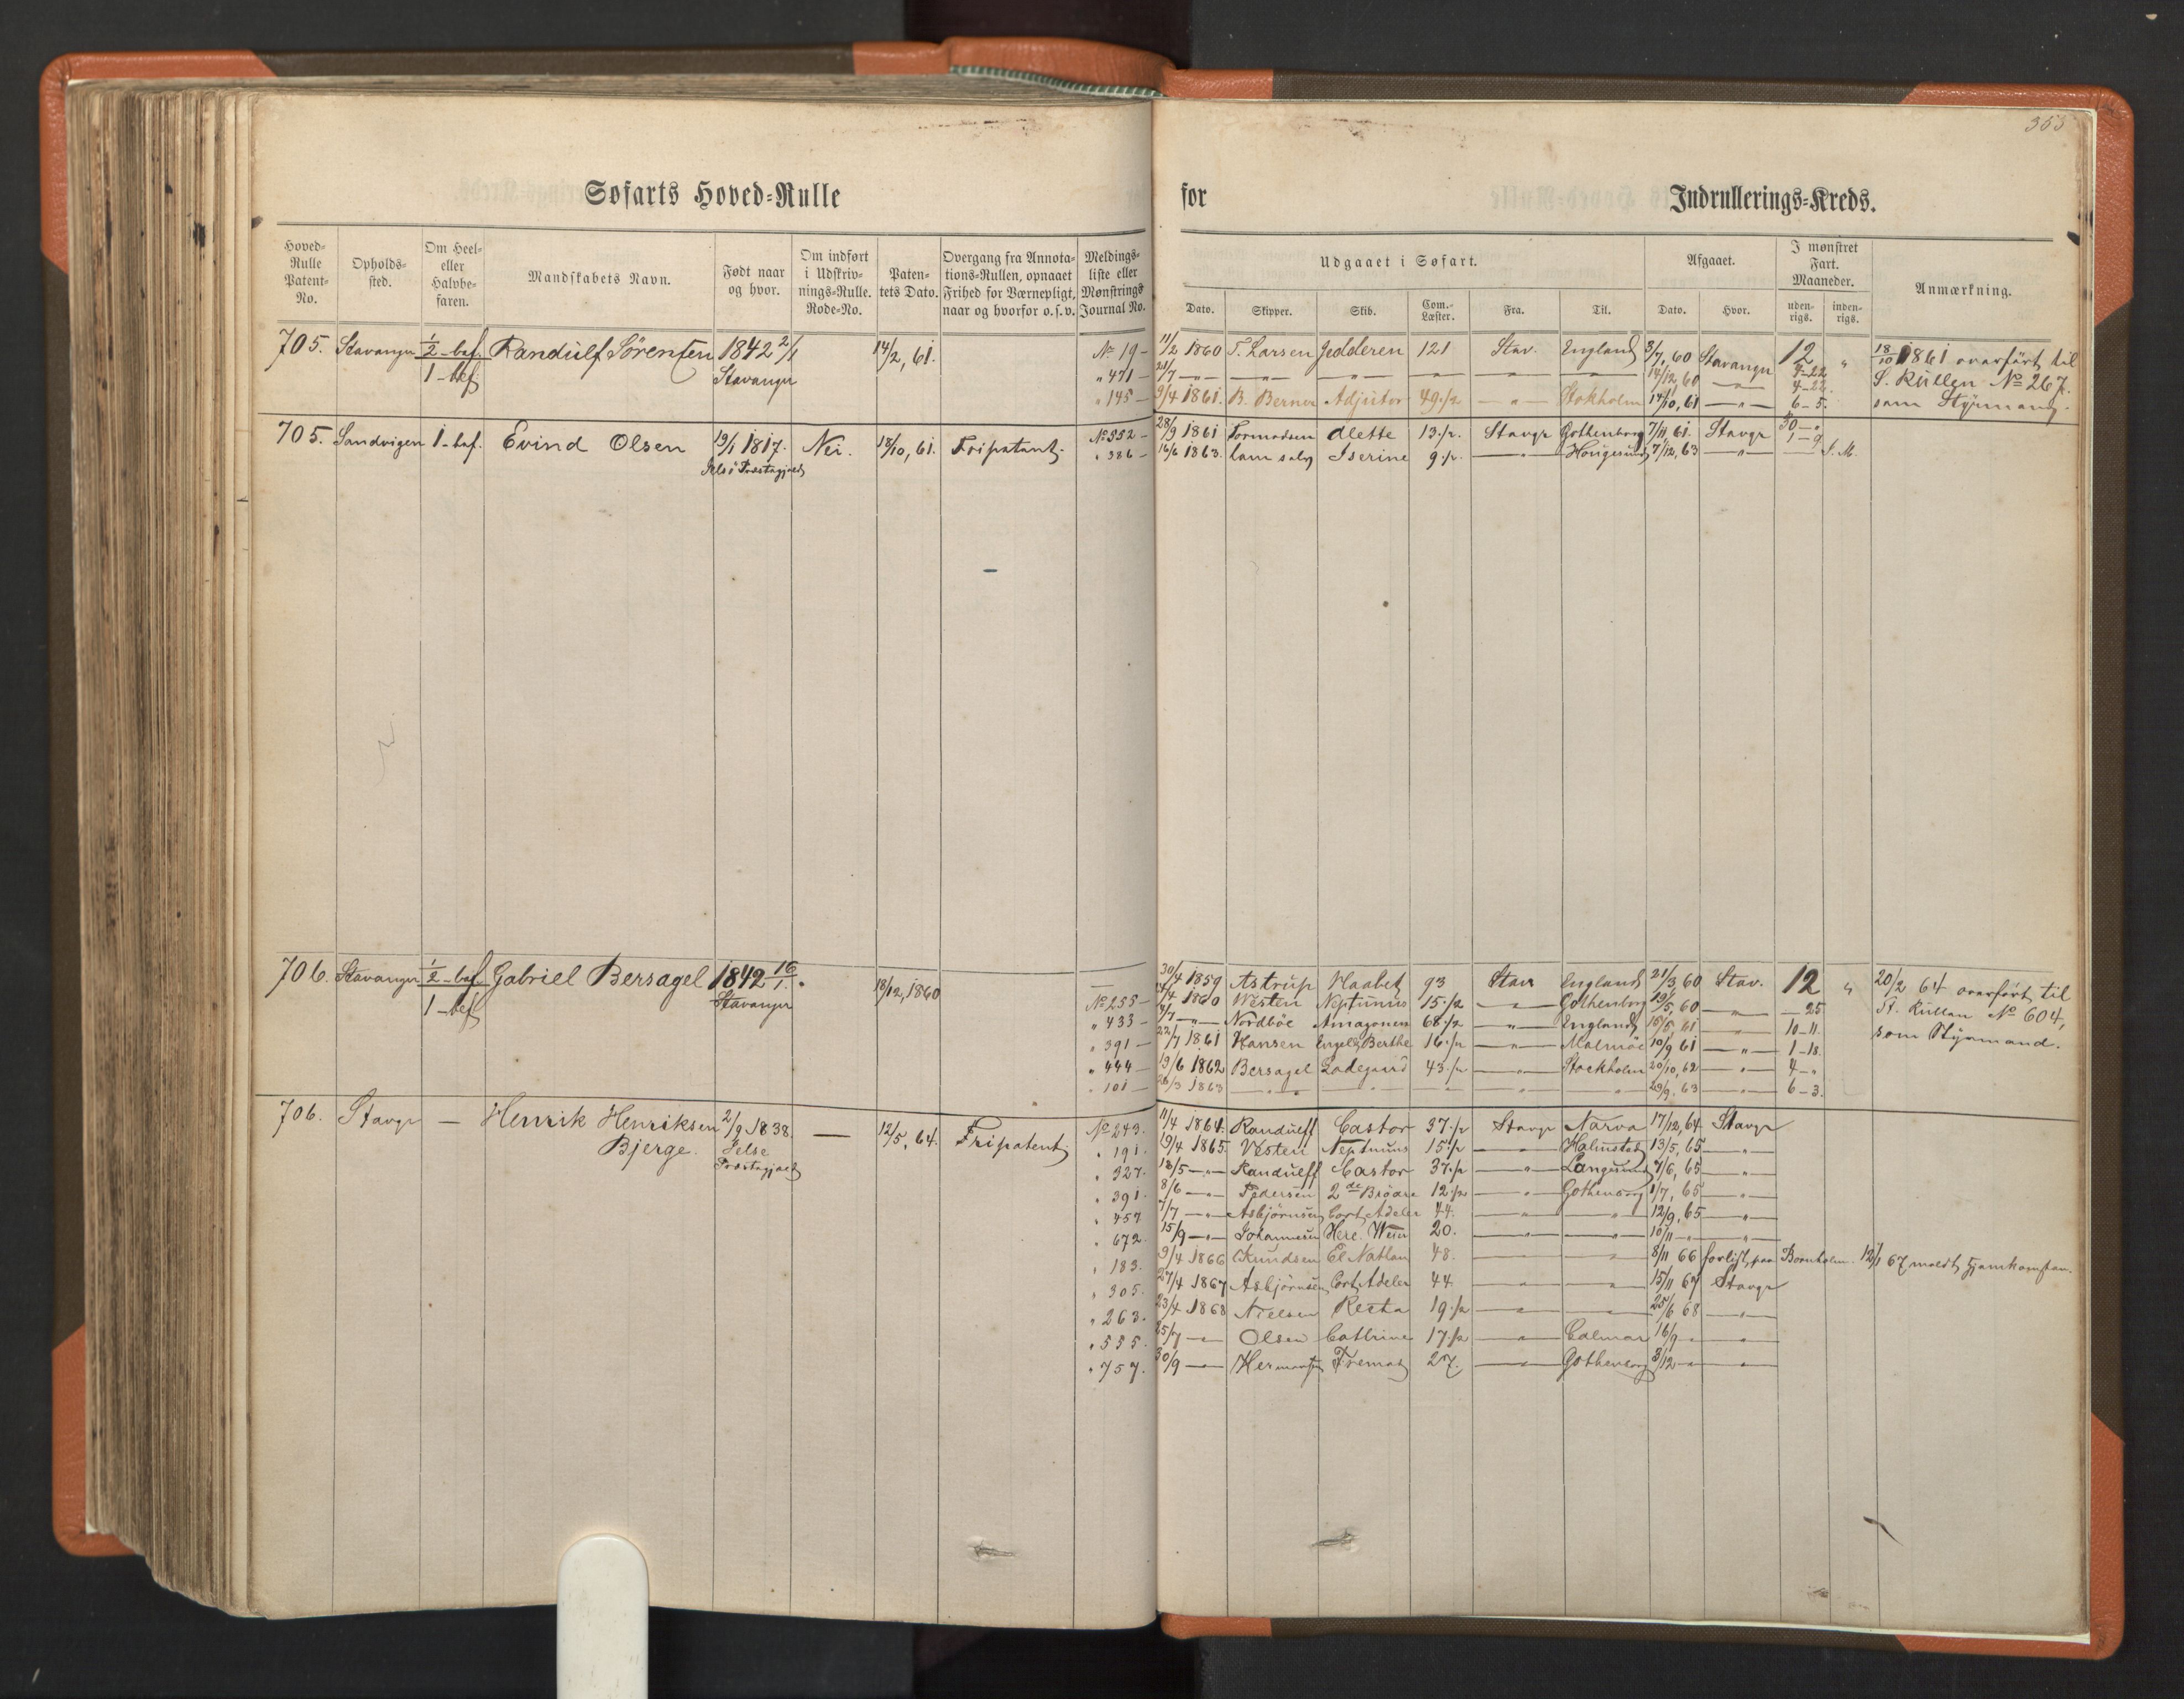 353
Søfarts Hoved-Rulle for Indrullerings-Kreds.
Hoved-Rulle Patent-No.
Opholds-sted.
Om Heel- eller Halvbe-faren.
Mandskabets Navn.
Født naar og hvor.
Om indført i Udskriv-nings-Rulle. Rode-No.
Paten-tets Dato.
Overgang fra Annota-tions-Rullen, opnaaet Frihed for Værnepligt, naar og hvorfor o.s.v.
Meldings-liste eller Mønstrings Journal No.
Udgaaet i Søfart.
Dato. Skipper. Skib. Com.-Læster. Fra. Til.
Afgaaet.
Dato. Hvor.
I mønstret Fart. Maaneder.
uden-rigs. inden-rigs.
Anmærkning.
705. Stavanger ½-bef. Randulf Sørensen 1842 2/1 14/2, 61. No 19 - 11/2 1860 T. Larsen Jedderen 121 Stav. England 3/7, 60 Stavanger 12 " 18/10 1861 overført til
1-bef Stavanger " 471 - 24/7 - " - - " - - " - - " - - " - - " - 14/12, 60 - " - 4-22 S. Rullen No 267.
" 145 - 9/4 1861. B. Berner Adjutor 49.½ - " - Stokholm 14/10, 61 - " - 6-5. som Styrmand.
705. Sandvigen 1-bef. Evind Olsen 19/1 1817. Nei. 18/10, 61. Fripatent. No 552 - 28/9 1861 Tormodsen Alette 13.½. Stavgr Gothenborg 7/11, 61. Stavgr 1-9
Præstegjæld " 386 - 16/6 1863. Iserine 9.½. - " - Hougesund 7/12, 63 - " -
706. Stavanger ½-bef. Gabriel Bersagel 1842 16/1. 18/12, 1860 30/4 1859 Astrup Haabet 93 Stav England 21/3, 60 Stav. 12 " 20/2 64 overført til
1-bef Stavanger No 255 - 1860 Westen Neptunus 15.½ - " - Gothenborg 19/5, 60 - " - - 25 St. Rullen No 604,
" 433 - - " - Nordbøe Amazonen 68.½ - " - England 61 - " - 10-11. som Styrmand.
" 391 - 22/7 1861 Hansen Engel Berthe 16.½ - " - Malmöe 10/9 61 - " - 1-18.
" 444 - 19/6 1862 Bersagel Ladegaard 43.½ - " - Stockholm 20/10, 62 - " - 4-"
" 101 - 26/3 1863 - " - - " - - " - - " - - " - 29/9. 63 - " - 6-3.
706. Stavgr - Henrik Henriksen 2/9 1838. - 12/5, 64. Fripatent. No 243. 11/4 1864. Randulff Castor 37.½ Stavgr Narva 17/12, 64. Stavgr
Bjerge. Jelse " 191. 19/4 1865. Vesten Neptunus 15.½ - " - Halmstad 13/5, 65 - " -
Præstegjæld " 327. 18/5 - " - Randulff Castor 37.½ - " - Langesund 7/6, 65 - " -
" 391. 8/6 - " - Pedersen 2de Brødre 12.½ - " - Gothenborg 1/7, 65 - " -
" 457 7/7 - " - Asbjørnsen Cort Adeler 44. - " - - " - 12/9, 65 - " -
" 672. 15/9 - " - Johannesen 20. - " - - " - 10/11 - " - - " -
" 183. 9/4 1866 Knudsen El Nathan 48. - " - - " - 8/11 66 forlist paa Bornholm. 12/1 67 meldt hjemkomsten.
" 305. 27/4 1867 Asbjørnsen Cort Adeler 44. - " - - " - 15/11 67 Stavgr
" 263. 23/4 1868 Nielsen Recta 19.½ - " - - " - 25/6 68 - " -
" 535. 25/7 - " - Olsen Cathrine 17.½ - " - Calmar 16/9 - " - - " -
" 757. 30/9 - " - Hermansen Fremad 27. - " - Gothenborg 3/12 - " - - " -